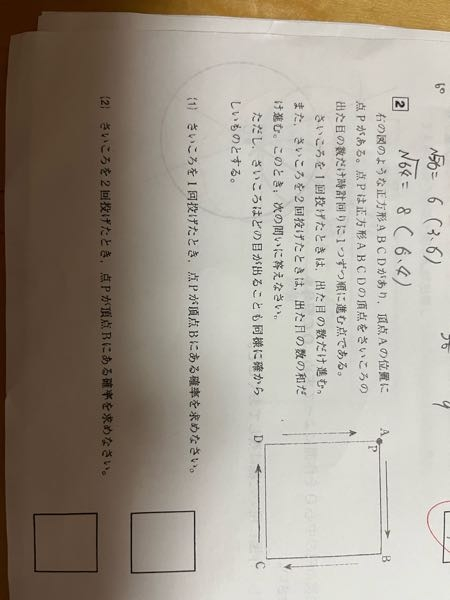 √36 = 6 (3、6)
√64 = 8 (6、4)
2
右の図のような正方形ABCDがあり、頂点Aの位置に
点Pがある。点Pは正方形ABCDの頂点をさいころの
出た目の数だけ時計回りに1つずつ順に進む点である。
さいころを1回投げたときは、出た目の数だけ進む。
また、さいころを2回投げたときは、出た目の数の和だ
け進む。このとき、次の問いに答えなさい。
ただし、さいころはどの目が出ることも同様に確から
しいものとする。
A
P
B
D
C
(1) さいころを1回投げたとき、点Pが頂点Bにある確率を求めなさい。
(2) さいころを2回投げたとき、点Pが頂点Bにある確率を求めなさい。